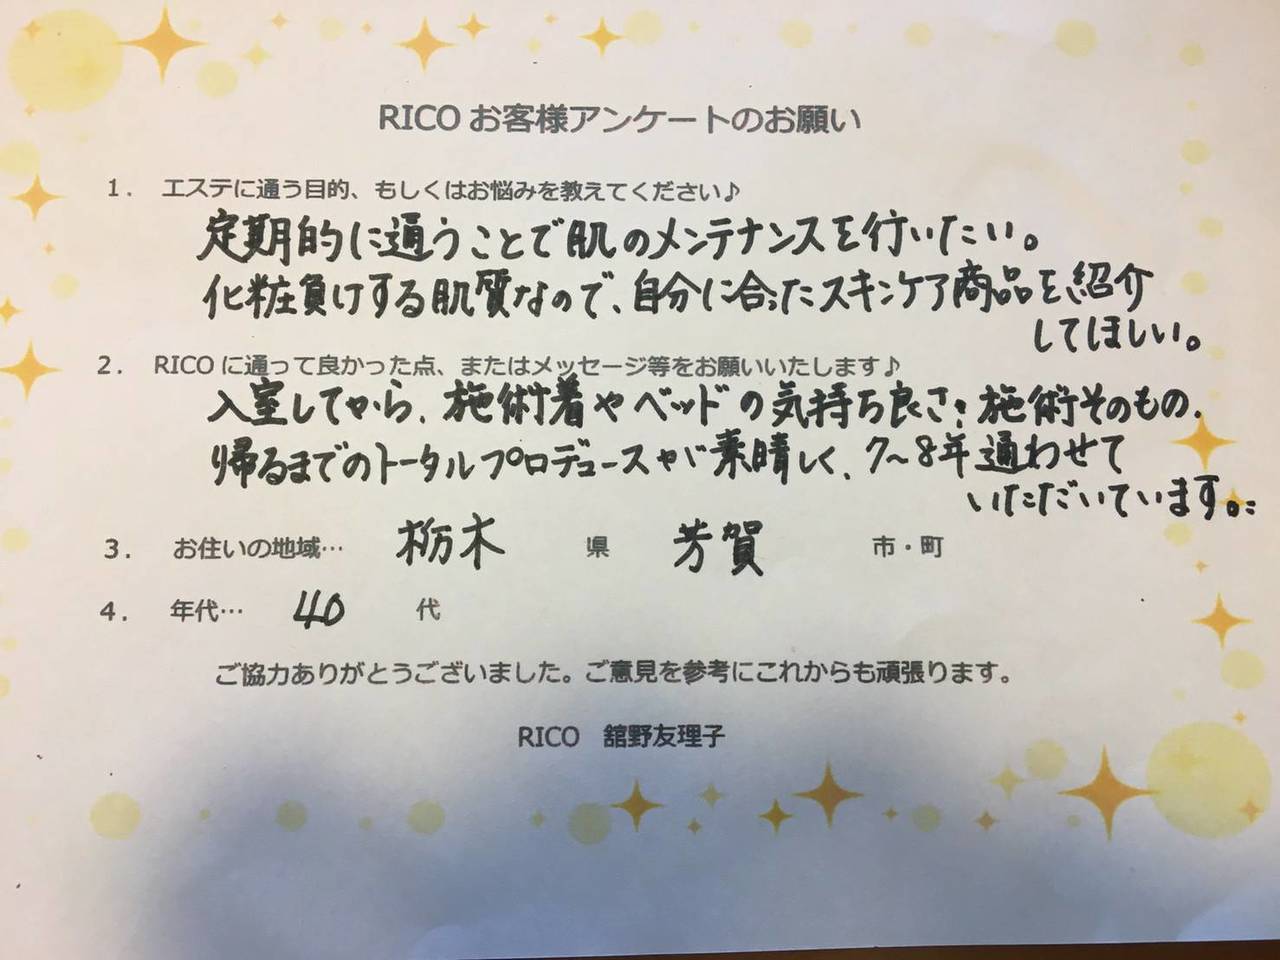 RICO お客様アンケートのお願い
1. エステに通う目的、もしくはお悩みを教えてください♪
定期的に通うことで肌のメンテナンスを行いたい。
化粧負けする肌質なので、自分に合ったスキンケア商品を紹介
してほしい。
2. RICO に通って良かった点、またはメッセージ等をお願いいたします♪
入室してから、施術着やベッドの気持ち良さ、施術そのもの、
帰るまでのトータルプロデュースが素晴しく、7〜8年通わせて
いただいています。
3. お住いの地域… 栃木 県 芳賀 市・町
4. 年代… 40 代
ご協力ありがとうございました。ご意見を参考にこれからも頑張ります。
RICO 舘野友理子